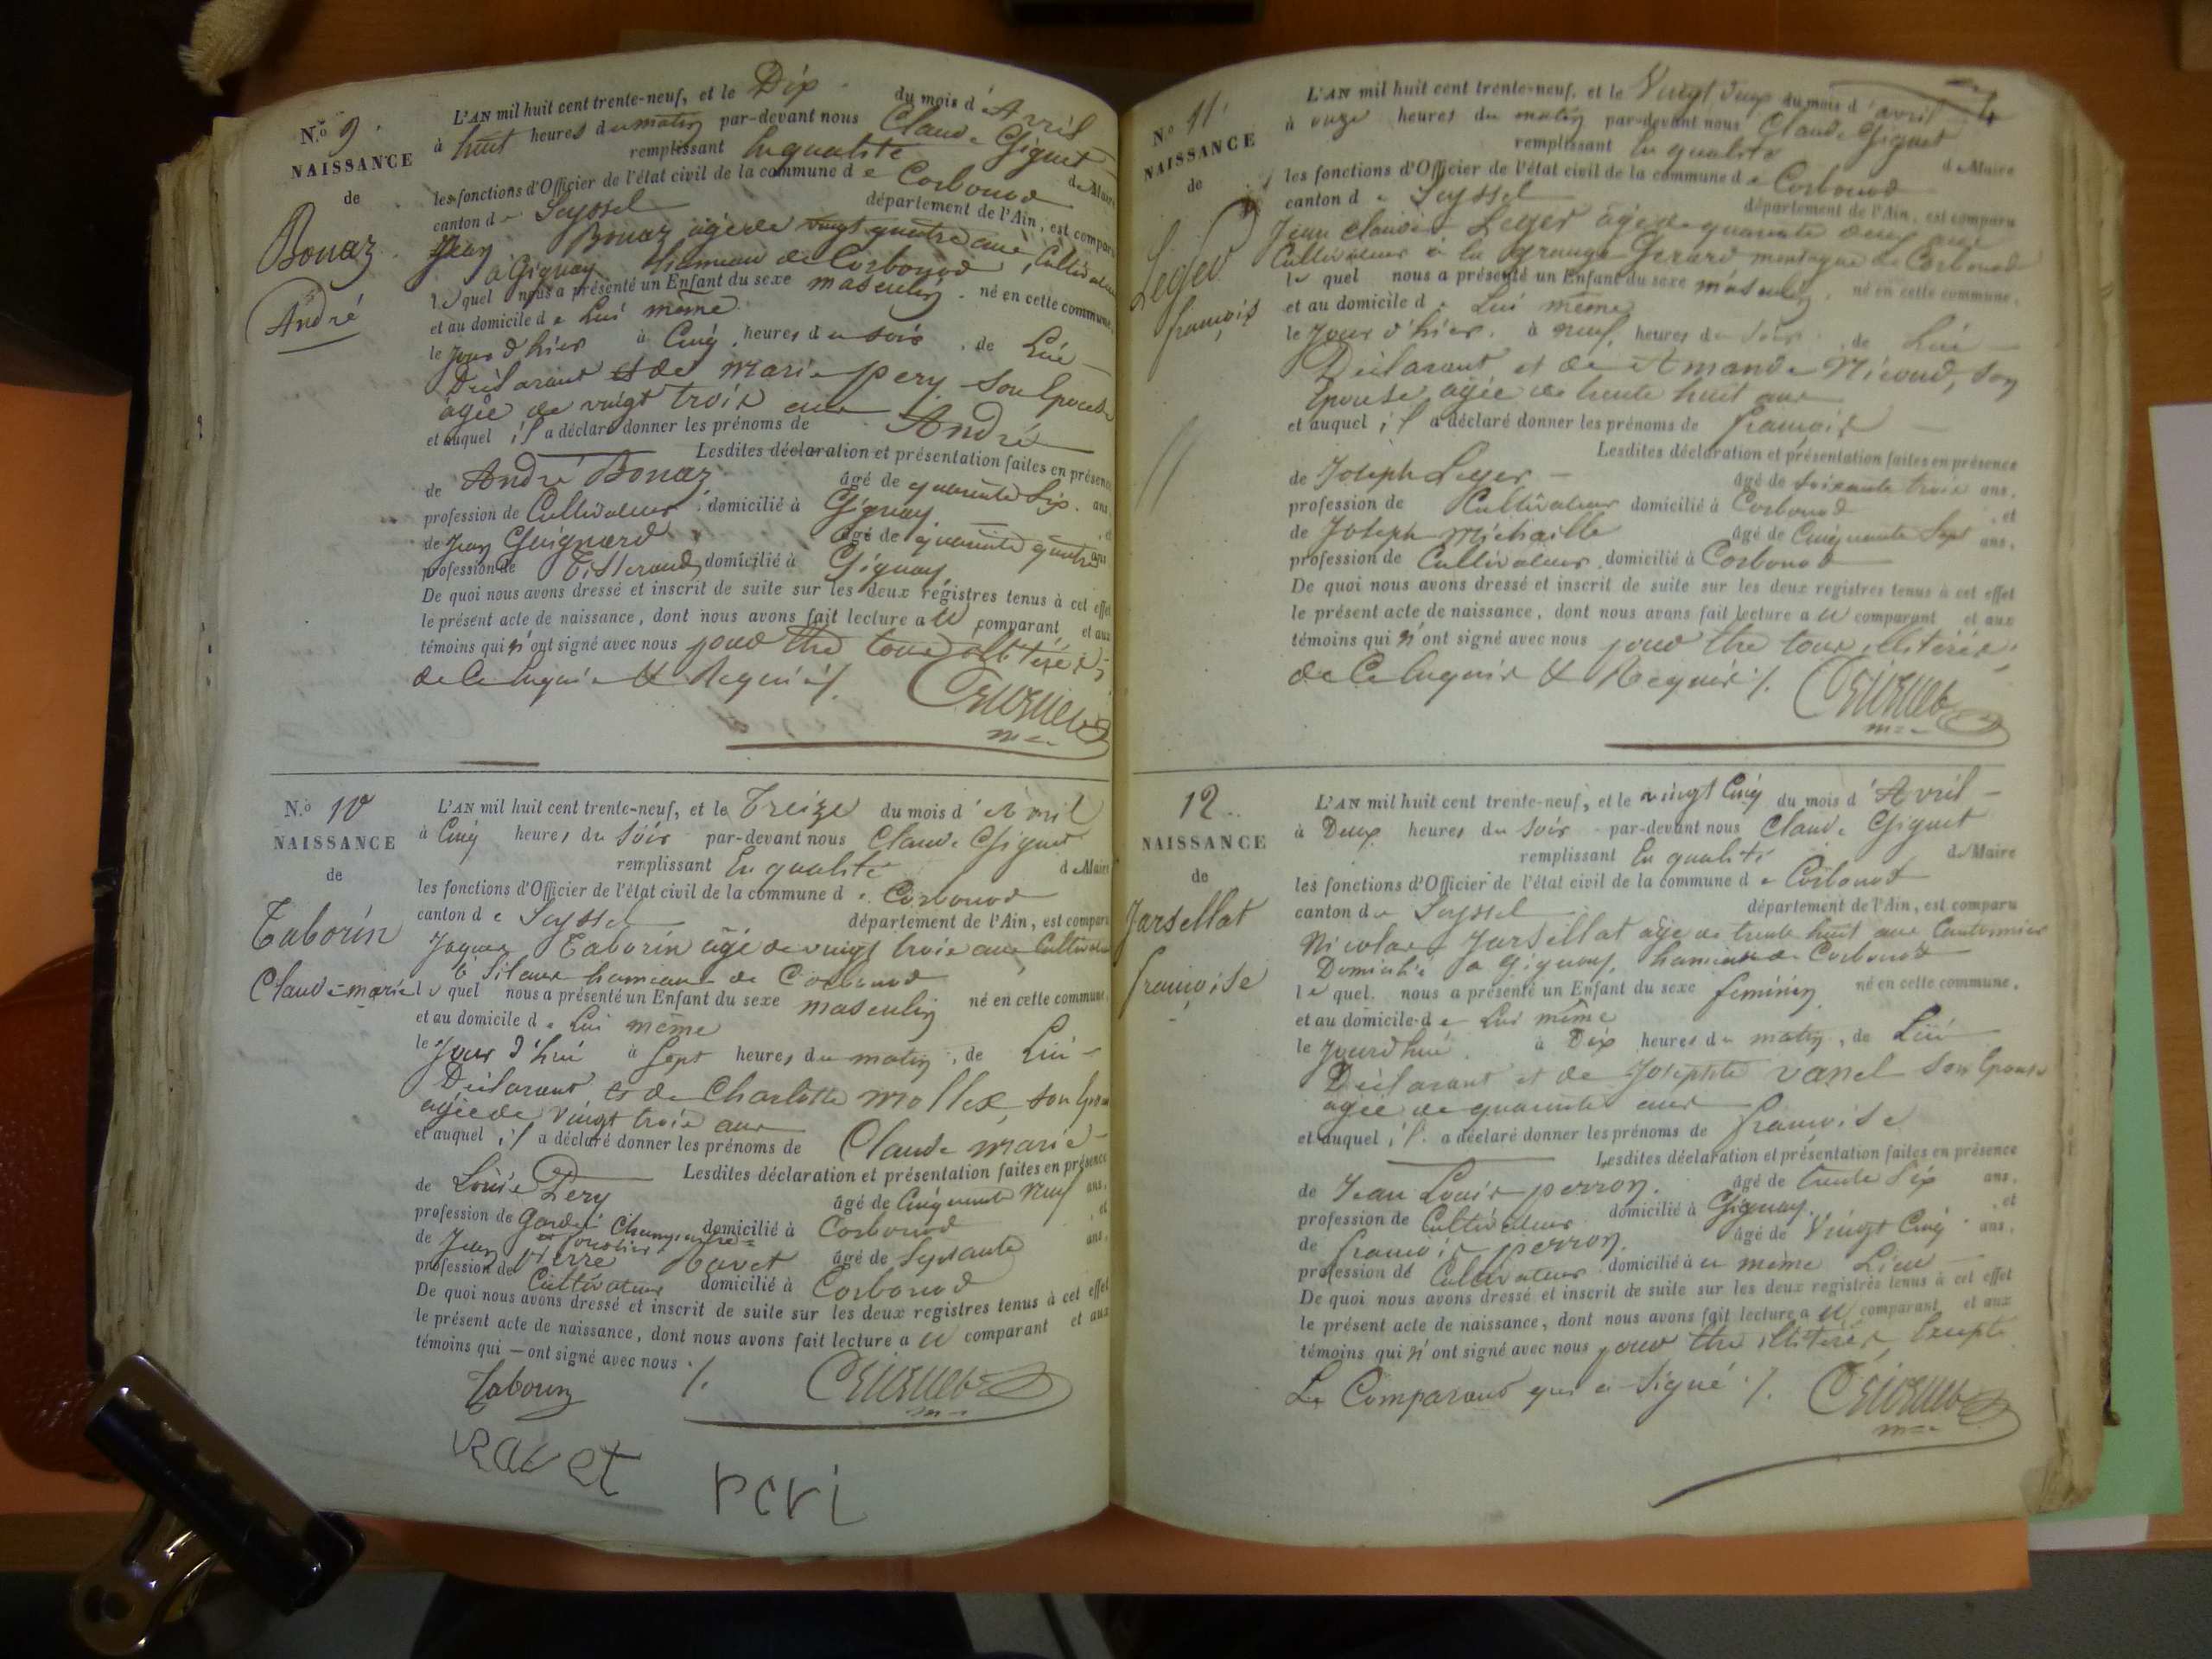 N.º 9.
NAISSANCE
de
Bonaz
André
L'AN mil huit cent trente-neuf, et le Dix du mois d'Avril
à huit heures du matin par-devant nous Claude Giguet
remplissant En qualité de Maire
les fonctions d'Officier de l'état civil de la commune de Corbonod
canton de Seyssel département de l'Ain, est comparu
Jean Bonaz âgé de vingt quatre ans, Cultivateur
à Gignay hameau de Corbonod
lequel nous a présenté un Enfant du sexe masculin né en cette commune,
et au domicile de Lui même
le Jour d'hier à Cinq heures du soir, de Lui
Déclarant et de marie pery son Epouse
âgée de vingt trois ans
et auquel il a déclaré donner les prénoms de André
Lesdites déclaration et présentation faites en présence
de André Bonaz âgé de quarante Six ans,
profession de Cultivateur domicilié à Gignay, et
de Jean Guignard âgé de quarante quatre ans
profession de Tisserand domicilié à Gignay
De quoi nous avons dressé et inscrit de suite sur les deux registres tenus à cet effet
le présent acte de naissance, dont nous avons fait lecture au comparant et aux
témoins qui n'ont signé avec nous pour être tous illitérés
de ce Enquis & Requis /.
m
N.º 10
NAISSANCE
de
Taborin
Claude-marie
L'AN mil huit cent trente-neuf, et le Treize du mois d'Avril
à Cinq heures du Soir par-devant nous Claude Giguet
remplissant En qualité de Maire
les fonctions d'Officier de l'état civil de la commune de Corbonod
canton de Seyssel département de l'Ain, est comparu
Jaques Taborin âgé de vingt trois ans Cultivateur
à Silans hameau de Corbonod
lequel nous a présenté un Enfant du sexe masculin né en cette commune,
et au domicile de Lui même
le Jour d'hui à Sept heures du matin, de Lui
Déclarant et de Charlotte mollex son Epouse
âgée de Vingt trois ans
et auquel il a déclaré donner les prénoms de Claude marie
Lesdites déclaration et présentation faites en présence
de Louis Pery âgé de Cinquante Neuf ans,
profession de Garde Champêtre et forestier domicilié à Corbonod, et
de Jean Pierre Ravet âgé de Septante ans,
profession de Cultivateur domicilié à Corbonod
De quoi nous avons dressé et inscrit de suite sur les deux registres tenus à cet effet
le présent acte de naissance, dont nous avons fait lecture au comparant et aux
témoins qui — ont signé avec nous /.
Taborin
m
Ravet peri
N.º 11.
NAISSANCE
de
Leger
françois
L'AN mil huit cent trente-neuf, et le Vingt deux du mois d'avril
à onze heures du matin par-devant nous Claude Giguet
remplissant En qualité de Maire
les fonctions d'Officier de l'état civil de la commune de Corbonod
canton de Seyssel département de l'Ain, est comparu
Jean Claude Leger âgé de quarante deux ans
Cultivateur à la grange Gerard montagne de Corbonod
lequel nous a présenté un Enfant du sexe masculin, né en cette commune,
et au domicile de Lui même
le Jour d'hier à neuf, heures du Soir, de Lui
Déclarant et de Amande Nicoud, Son
Epouse âgée de trente huit ans
et auquel il a déclaré donner les prénoms de françois
Lesdites déclaration et présentation faites en présence
de Joseph Leger âgé de Soixante trois ans,
profession de Cultivateur domicilié à Corbonod, et
de Joseph michaille âgé de Cinquante Sept ans,
profession de Cultivateur domicilié à Corbonod
De quoi nous avons dressé et inscrit de suite sur les deux registres tenus à cet effet
le présent acte de naissance, dont nous avons fait lecture au comparant et aux
témoins qui n'ont signé avec nous pour être tous illitérés,
de ce Enquis & Requis /.
m
12
NAISSANCE
de
Jarsellat
françoise
L'AN mil huit cent trente-neuf, et le vingt Cinq du mois d'Avril
à Deux heures du Soir par-devant nous Claude Giguet
remplissant En qualité de Maire
les fonctions d'Officier de l'état civil de la commune de Corbonod
canton de Seyssel département de l'Ain, est comparu
Nicolas Jarsellat âgé de trente huit ans Cantonnier
Domicilié à Gignay, hameau de Corbonod
lequel nous a présenté un Enfant du sexe féminin né en cette commune,
et au domicile de Lui même
le Jourd'hui à Dix heures du matin, de Lui
Déclarant et de Josephte vanel son Epouse
âgée de quarante ans
et auquel il a déclaré donner les prénoms de françoise
Lesdites déclaration et présentation faites en présence
de Jean Louis perron. âgé de trente Six ans,
profession de Cultivateur domicilié à Gignay, et
de françois perron. âgé de Vingt Cinq ans,
profession de Cultivateur domicilié à ce même Lieu
De quoi nous avons dressé et inscrit de suite sur les deux registres tenus à cet effet
le présent acte de naissance, dont nous avons fait lecture au comparant et aux
témoins qui n'ont signé avec nous pour être illitérés, Excepté
Le Comparant qui a Signé /.
m